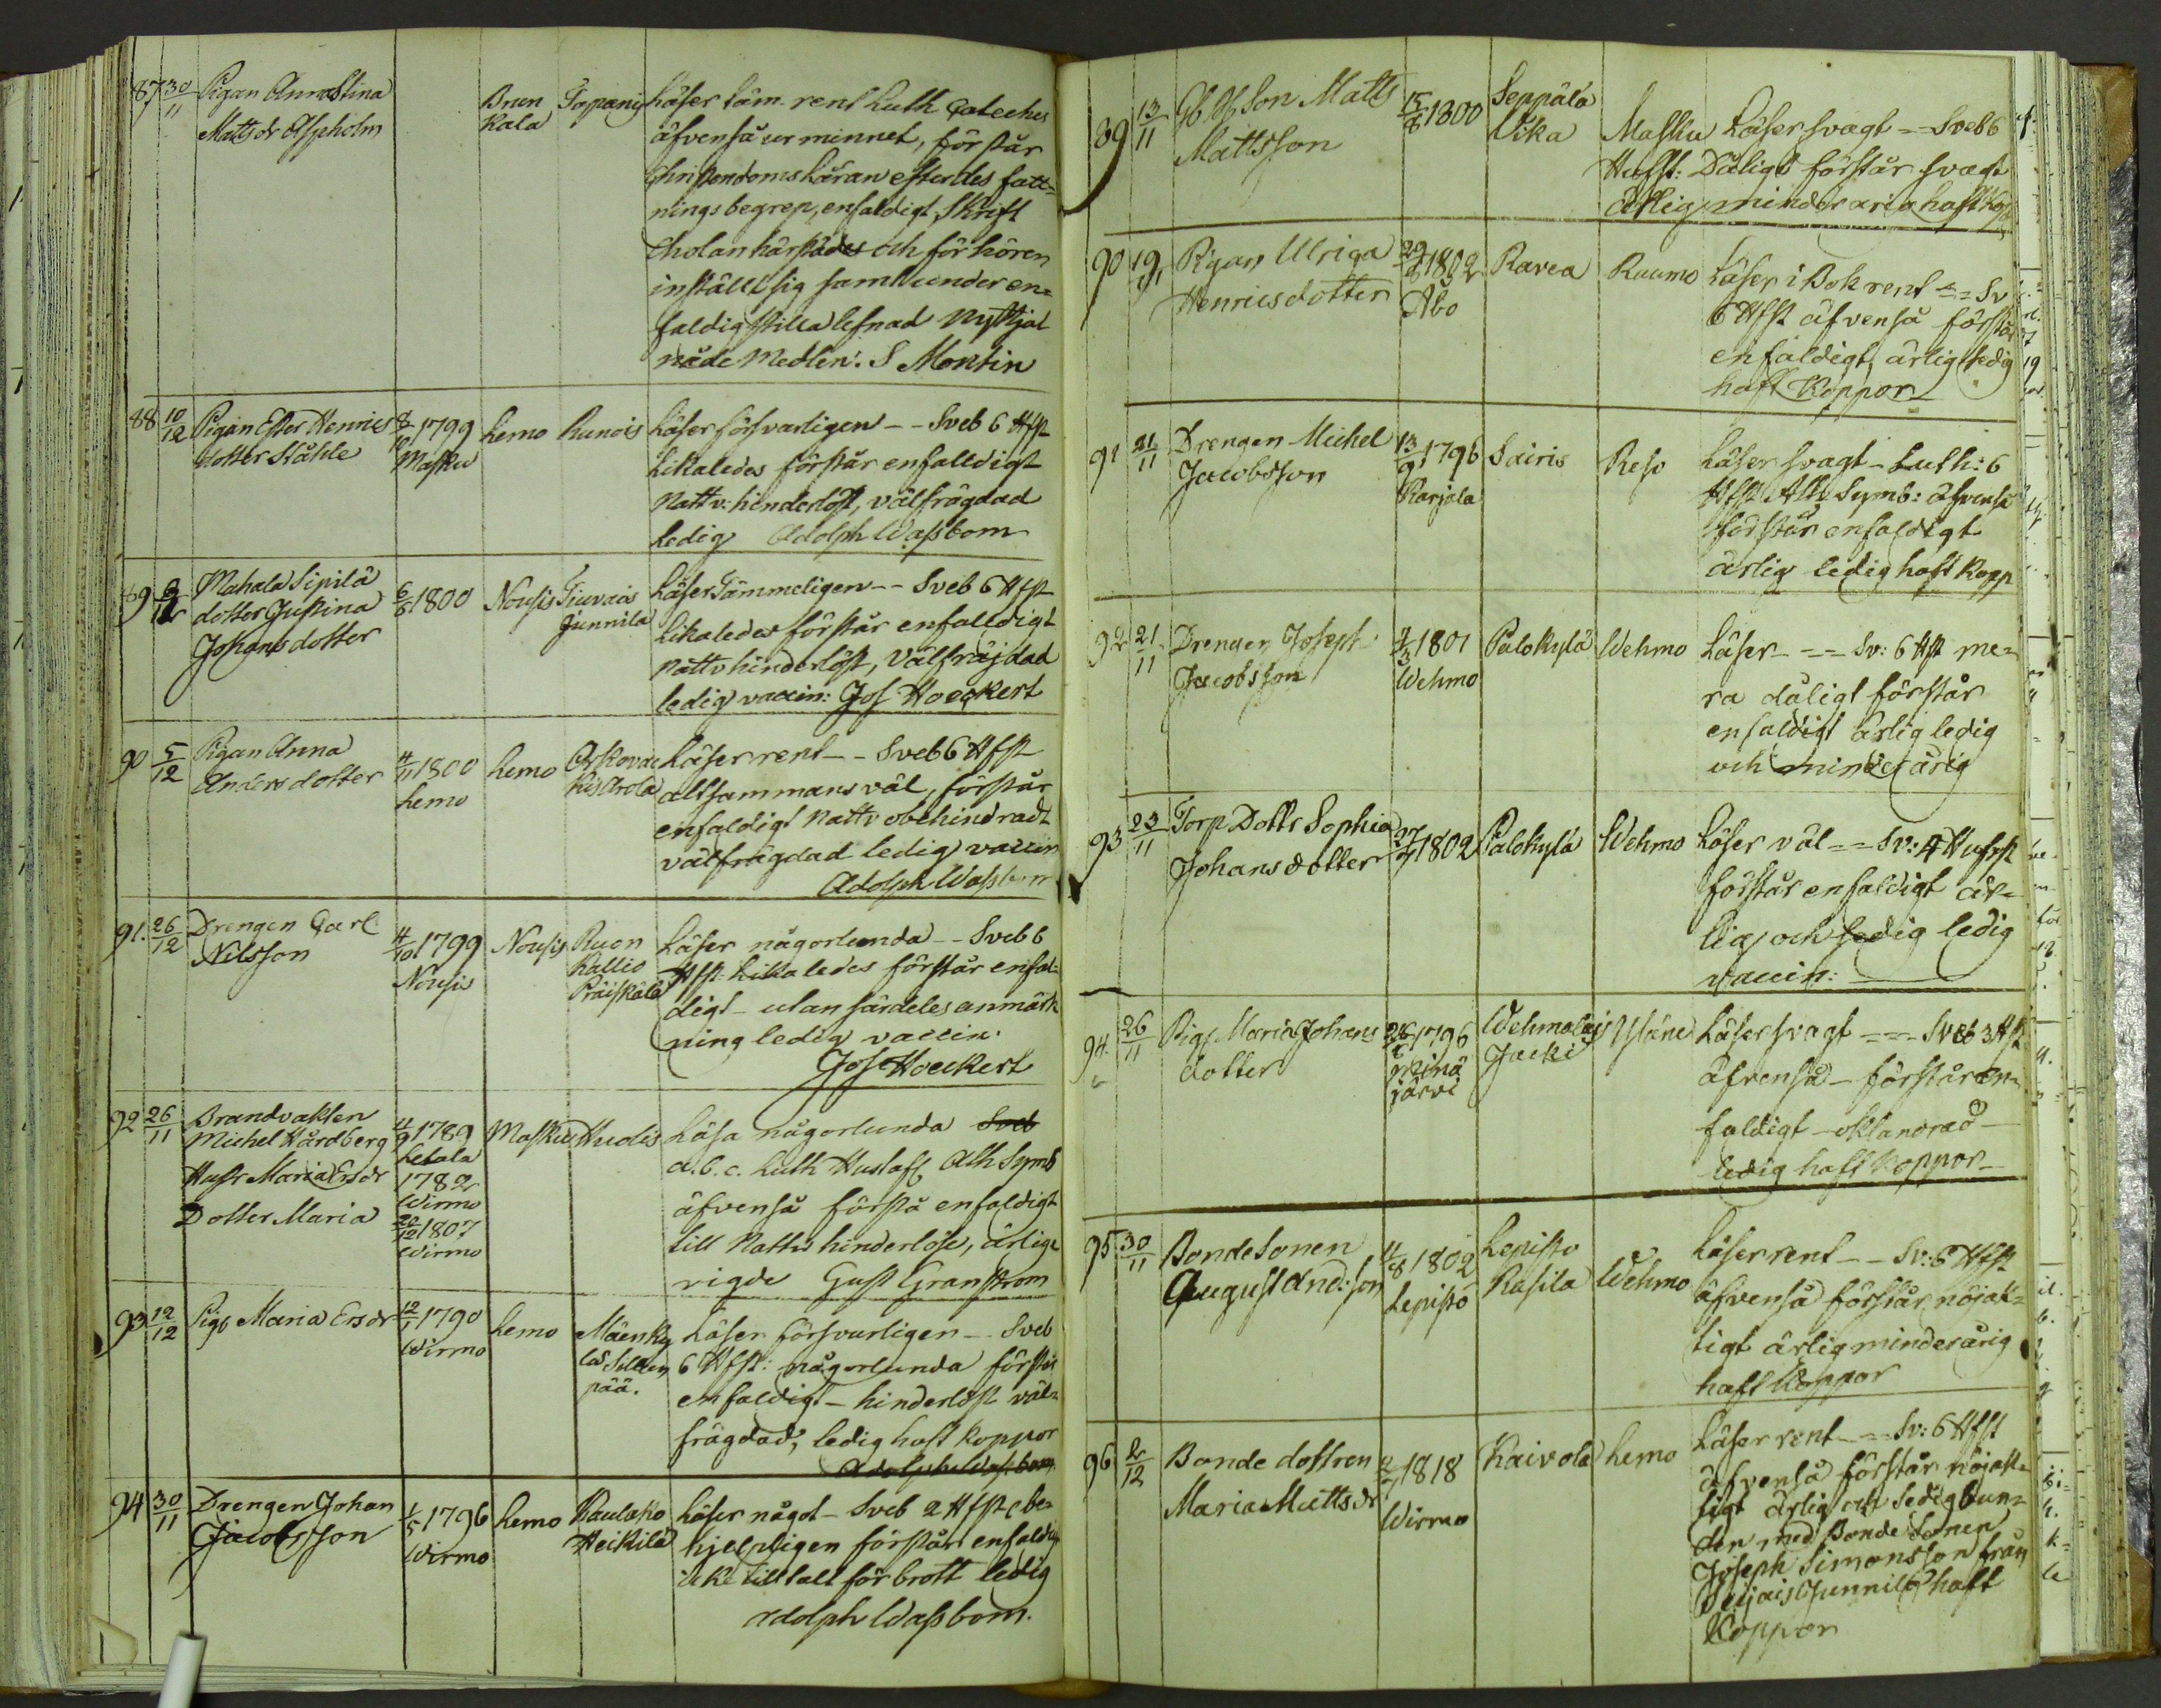 87 30/11 Pigan Anna Stina
Matts dr Aspholm
Brun
kala
Läser täm. rent Luth Cateches
äfvenså ur minnet, förstår
Christendoms Läran efter des fatt=
nings begrep, enfaldigt, Skrift
cholan härstädes och förhören
inställt sig samt under en=
faldig stilla lefnad Nyttjat
nåde Medlen. S Montin
88 10/12 Pigan Ester Henrics
dotter Ståhle
8/10 1799
Masku
Lemo
Läser försvarligen -- Sveb 6 Hfst
Likaledes förstår enfalldigt
Nattv. hinderlöst, välfrägdad
Ledig Adolph Wasbom
89 Mahala Sipilä
dotter Justina
Johans dotter
6/8 1800
Nousis
Junnila
Läser Tämmeligen -- Sveb 6 Hfst
Likaledes förstår enfalldigt
Nattv hinderlöst, Välfräjdad
ledig vaccin: Jos Hoeckert
90 5/12 Pigan Anna
Anders dotter
4/11 1800
Lemo
Lemo
Läser rent -- Sveb 6 Hfst
altsammans väl, förstår
enfaldigt Nattv obehindradt
välfrägdad ledig vaccin
Adolph Wasbom
91. 26/12 Drengen Carl
Nilsson
4/10 1799
Nousis
Nousis
Ruon
Kallio
Präiskälä
Läser någorlunda -- Sveb 6
Hfst: Likaledes förstår enfal=
digt - utan särdeles anmärk
ning ledig vaccin.
Jos Hoeckert
92 26/11 Brandvakten
Michel Hårdberg
Hustr Maria Ersdr
Dotter Maria
4/9 1789
Letala
1782
Wirmo
20/12 1807
Wirmo
Masku
Läsa någorlunda Sveb
a.b.c. Luth Hustafl Ath Symb
äfvenså förstå enfaldigt
till Nattv hinderlöse, ärlige
vigde Gust Granstrom
93 12/12 Pig. Maria Ersdr
12/1 1790
Wirmo
Lemo
Mäenky
lä Sillan
pää.
Läser försvarligen -- Sveb
6 Hfst: någorlunda förstår
enfaldigt - hinderlöst väl=
frägdad, ledig haft koppor
Adolph Wasbom
94 30/11 Drengen Johan
Jacobsson
1/5 1796
Wirmo
Lemo
Raulako
Heikilä
Läser något - Sveb 2 Hfst be=
hjelpligen förstår enfaldigt
icke tilltalt för brott ledig
Adolph Wasbom.
89 13/11 Son Matts
Mattsson
15/8 1800
Seppälä
Wika
Masku
Läser svagt -- Sveb 6
Hufst: Dåligt förstår svagt
ärlig minderårig haft kop
90 19/11 Pigan Ulriga
Henricsdotter
1802
Åbo
Ravea
Raumo
Läser i Bok rent -- Sv
6 Hfst äfvenså förstår
enfaldigt, ärlig ledig
haft Koppor
91 21/11 Drengen Michel
Jacobsson
13/9 1796
Karjala
Sairis
Reso
Läser svagt - Luth: 6
Hfst Ath. Symb: äfvenså
förstår enfaldigt
ärlig ledig haft Kopp
92 21/11 Drengen Joseph
Jacobsson
1801
Wehmo
Palokylä
Wehmo
Läser - -- Sv: 6 Hfst me=
ra dåligt förstår
enfaldigt ärlig ledig
och minderårig
93 23/11 Torp Dottr Sophia
Johans dotter
27/7 1802
Palokylä
Wehmo
Läser väl -- Sv: 4 Hufst
förstår enfaldigt är=
lig och sedig ledig
vaccin:
94 26/11 Pig. Maria Johans
dotter
1796
järvi
Wehmalais
Jacki
Yläne
Läser svagt --- Sveb 3 Hfst
äfvenså - förstår en=
faldigt - oklandrad -
ledig haft Koppor -
95 30/11 Bonde Sonen
August And:son
4/8 1802
Lepistö
Lepisto
Rasila
Wehmo
Läser rent -- Sv: 6 Hfst
äfvenså förstår nöjak=
tigt ärlig minderårig
haft Koppor
96 2/12 Bonde dottren
Maria Matts dr
1818
Wirmo
Kaivola
Lemo
Läser rent --- Sv: 6 Hfst
äfvenså förstår nöjak=
tigt ärlig och sedig bun=
den med Bonde Sonen
Joseph Simonsson från
Junnila haft
Koppor